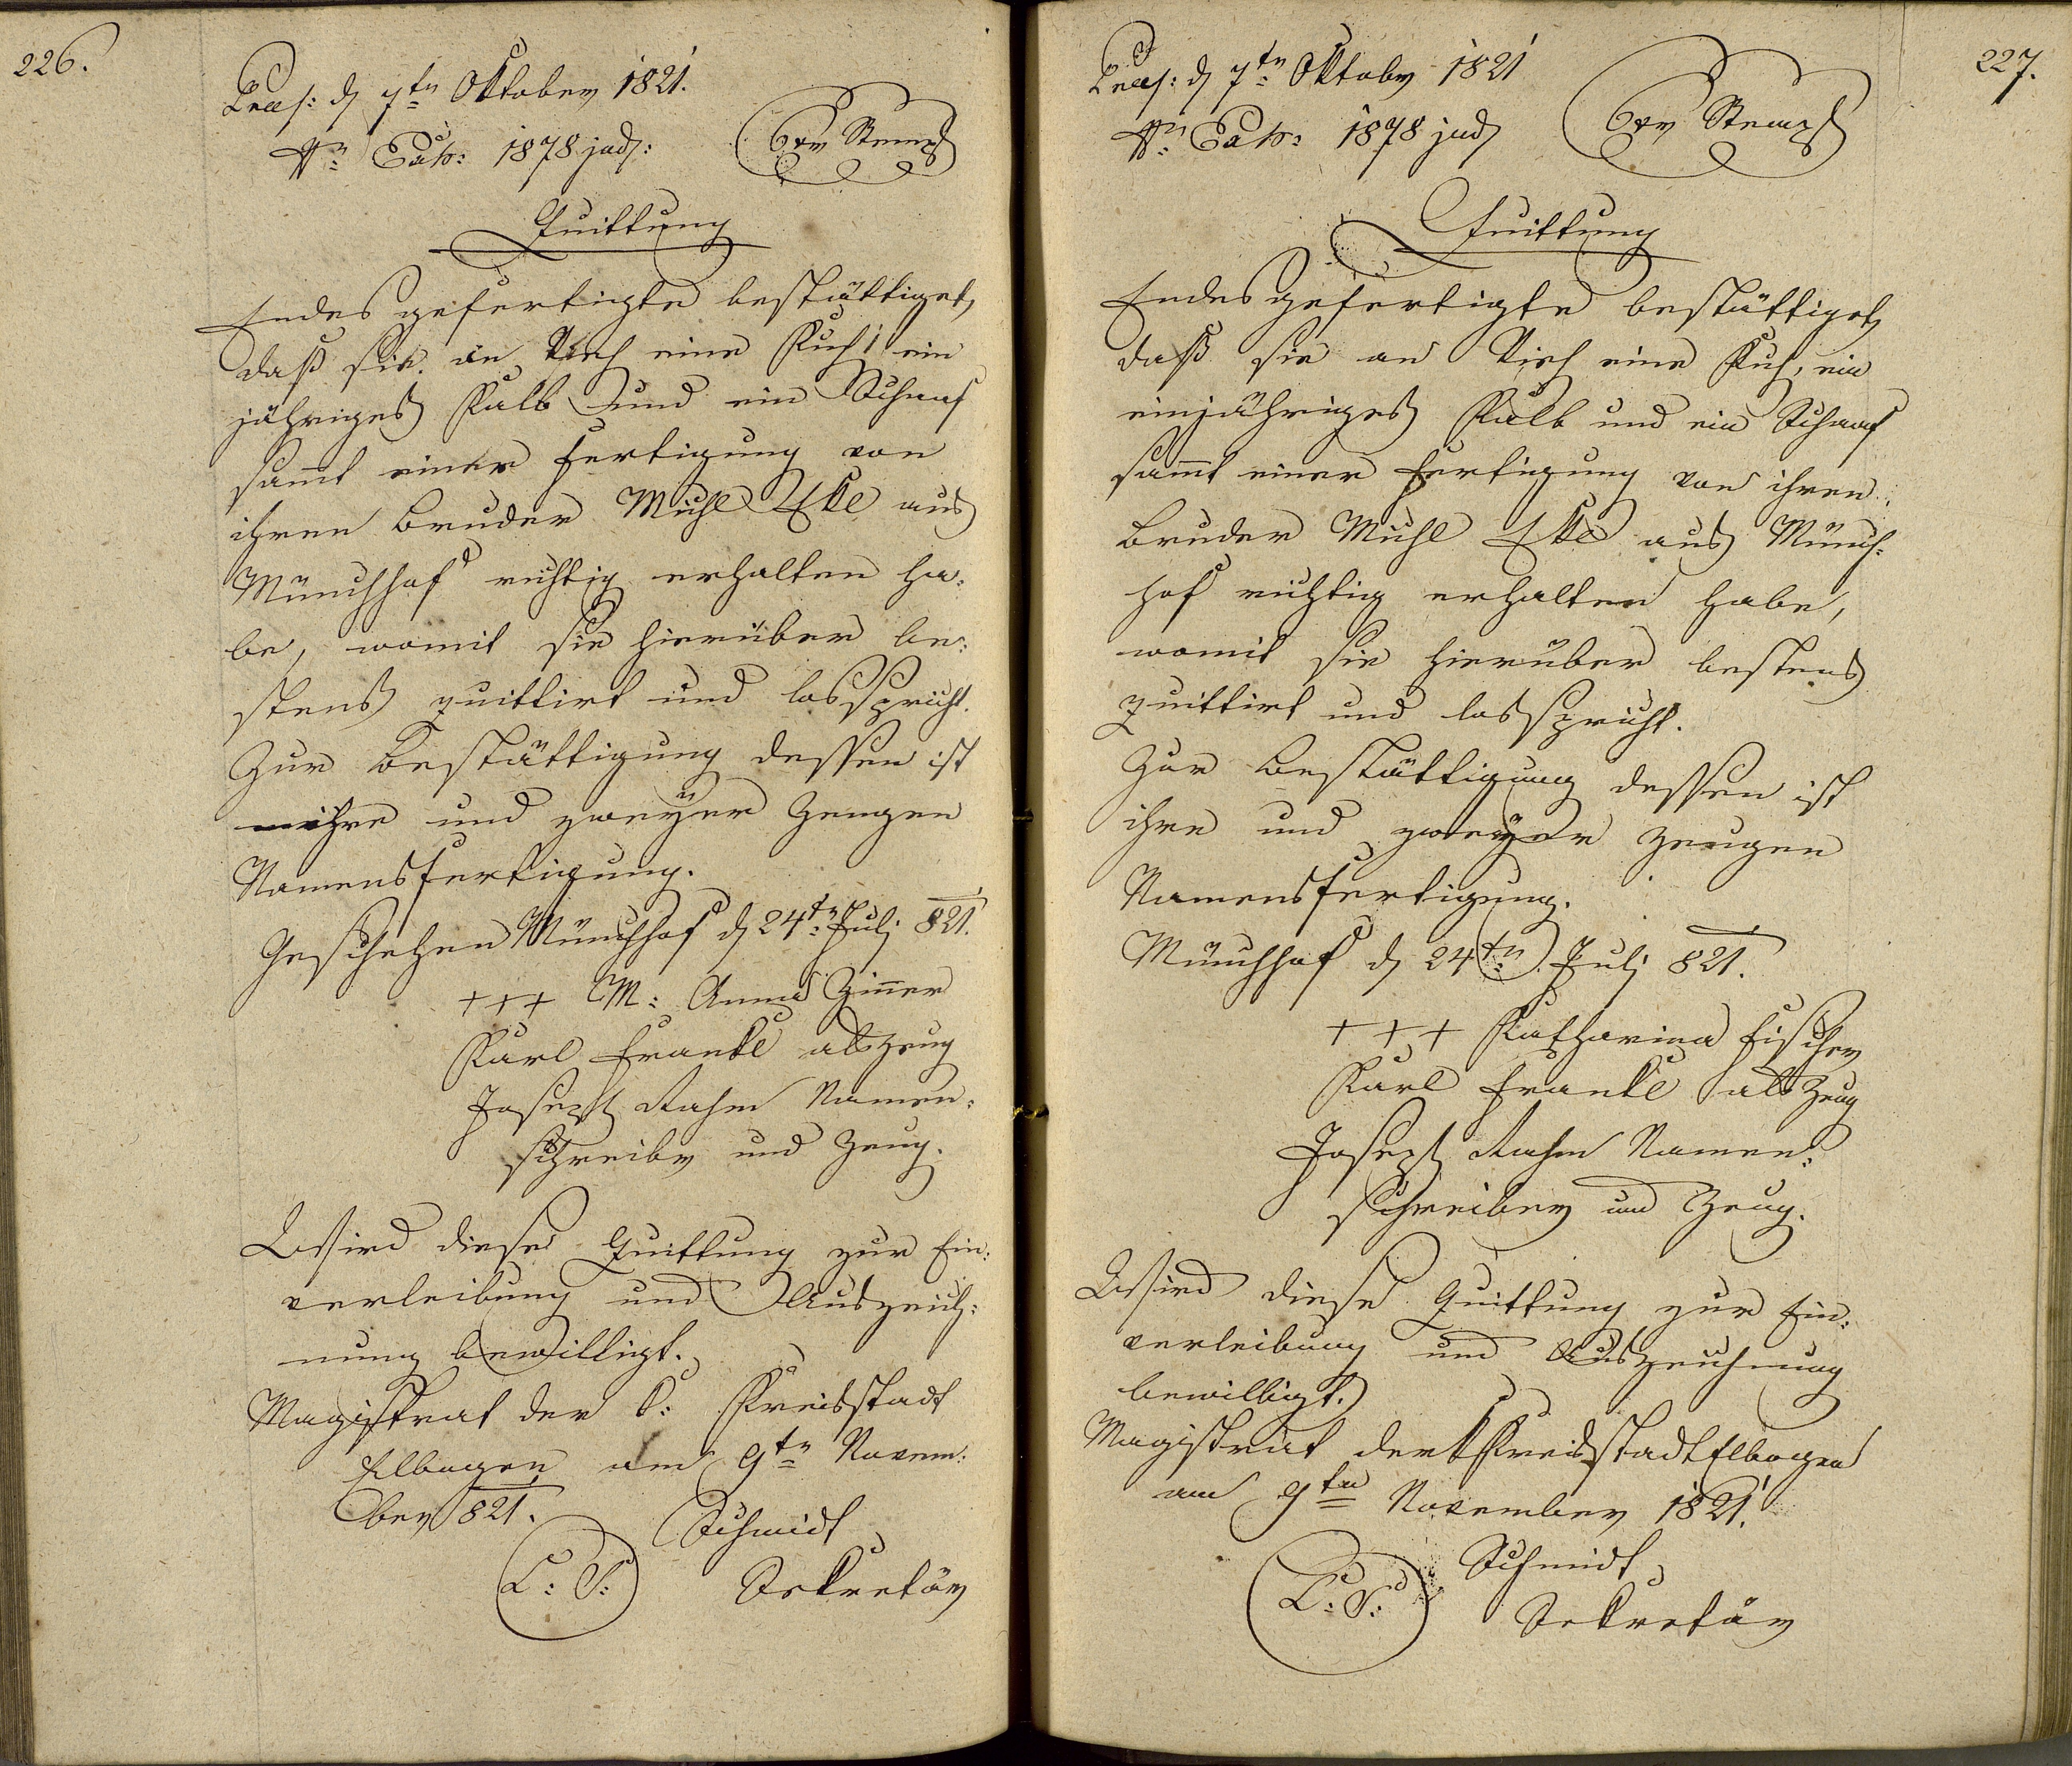 226.
Praes: d 7tn Oktober 1821.
Nro Exh: 1878 jud:
6xr Stempl
Quittung
Endesgefertigte bestättiget,
daß sie an Vieh eine Kuh, ein
jähriges Kalb und ein Schaaf
sam̅t einer Fertigung von
ihren Bruder Michl Ekl aus
Münchhof richtig erhalten ha:
be, womit sie hierüber be:
stens quittirt und losspricht.
Zur Bestättigung dessen ist
ihre und zweÿer Zeugen
Namensfertigung.
Geschehen Münchhof d 24tn Juli 821.
+++ M: Anna Zin̅er
Karl Frankl als Zeug
Joseph Rahm Namen:
schreiber und Zeug.
Wird diese Quittung zur Ein:
verleibung und Auszeich:
nung bewilligt.
Magistrat der k: Kreisstadt
Elbogen am 9tn Novem:
ber 821.
Schmidt
L: S:
Sekretär
227.
Praes: d 7tn Oktober 1821
Nro Exh: 1878 jud
6xr Stempl
Quittung
Endesgefertigte bestättiget,
daß sie an Vieh eine Kuh, ein
einjähriges Kalb und ein Schaaf
sam̅t einer Fertigung von ihren
Bruder Michl Ekl aus Münch:
hof richtig erhalten habe,
womit sie hierüber bestens
quittirt und losspricht.
Zur Bestättigung dessen ist
ihre und zweÿer Zeugen
Namensfertigung.
Münchhof d 24tn Juli 821.
+++ Katharina Fischer
Karl Frankl als Zeug
Joseph Rahm Namen:
schreiber und Zeug.
Wird diese Quittung zur Ein:
verleibung und Auszeichnung
bewilligt.
Magistrat der k Kreisstadt Elbogen
am 9ten November 1821.
Schmidt
L: S:
Sekretär